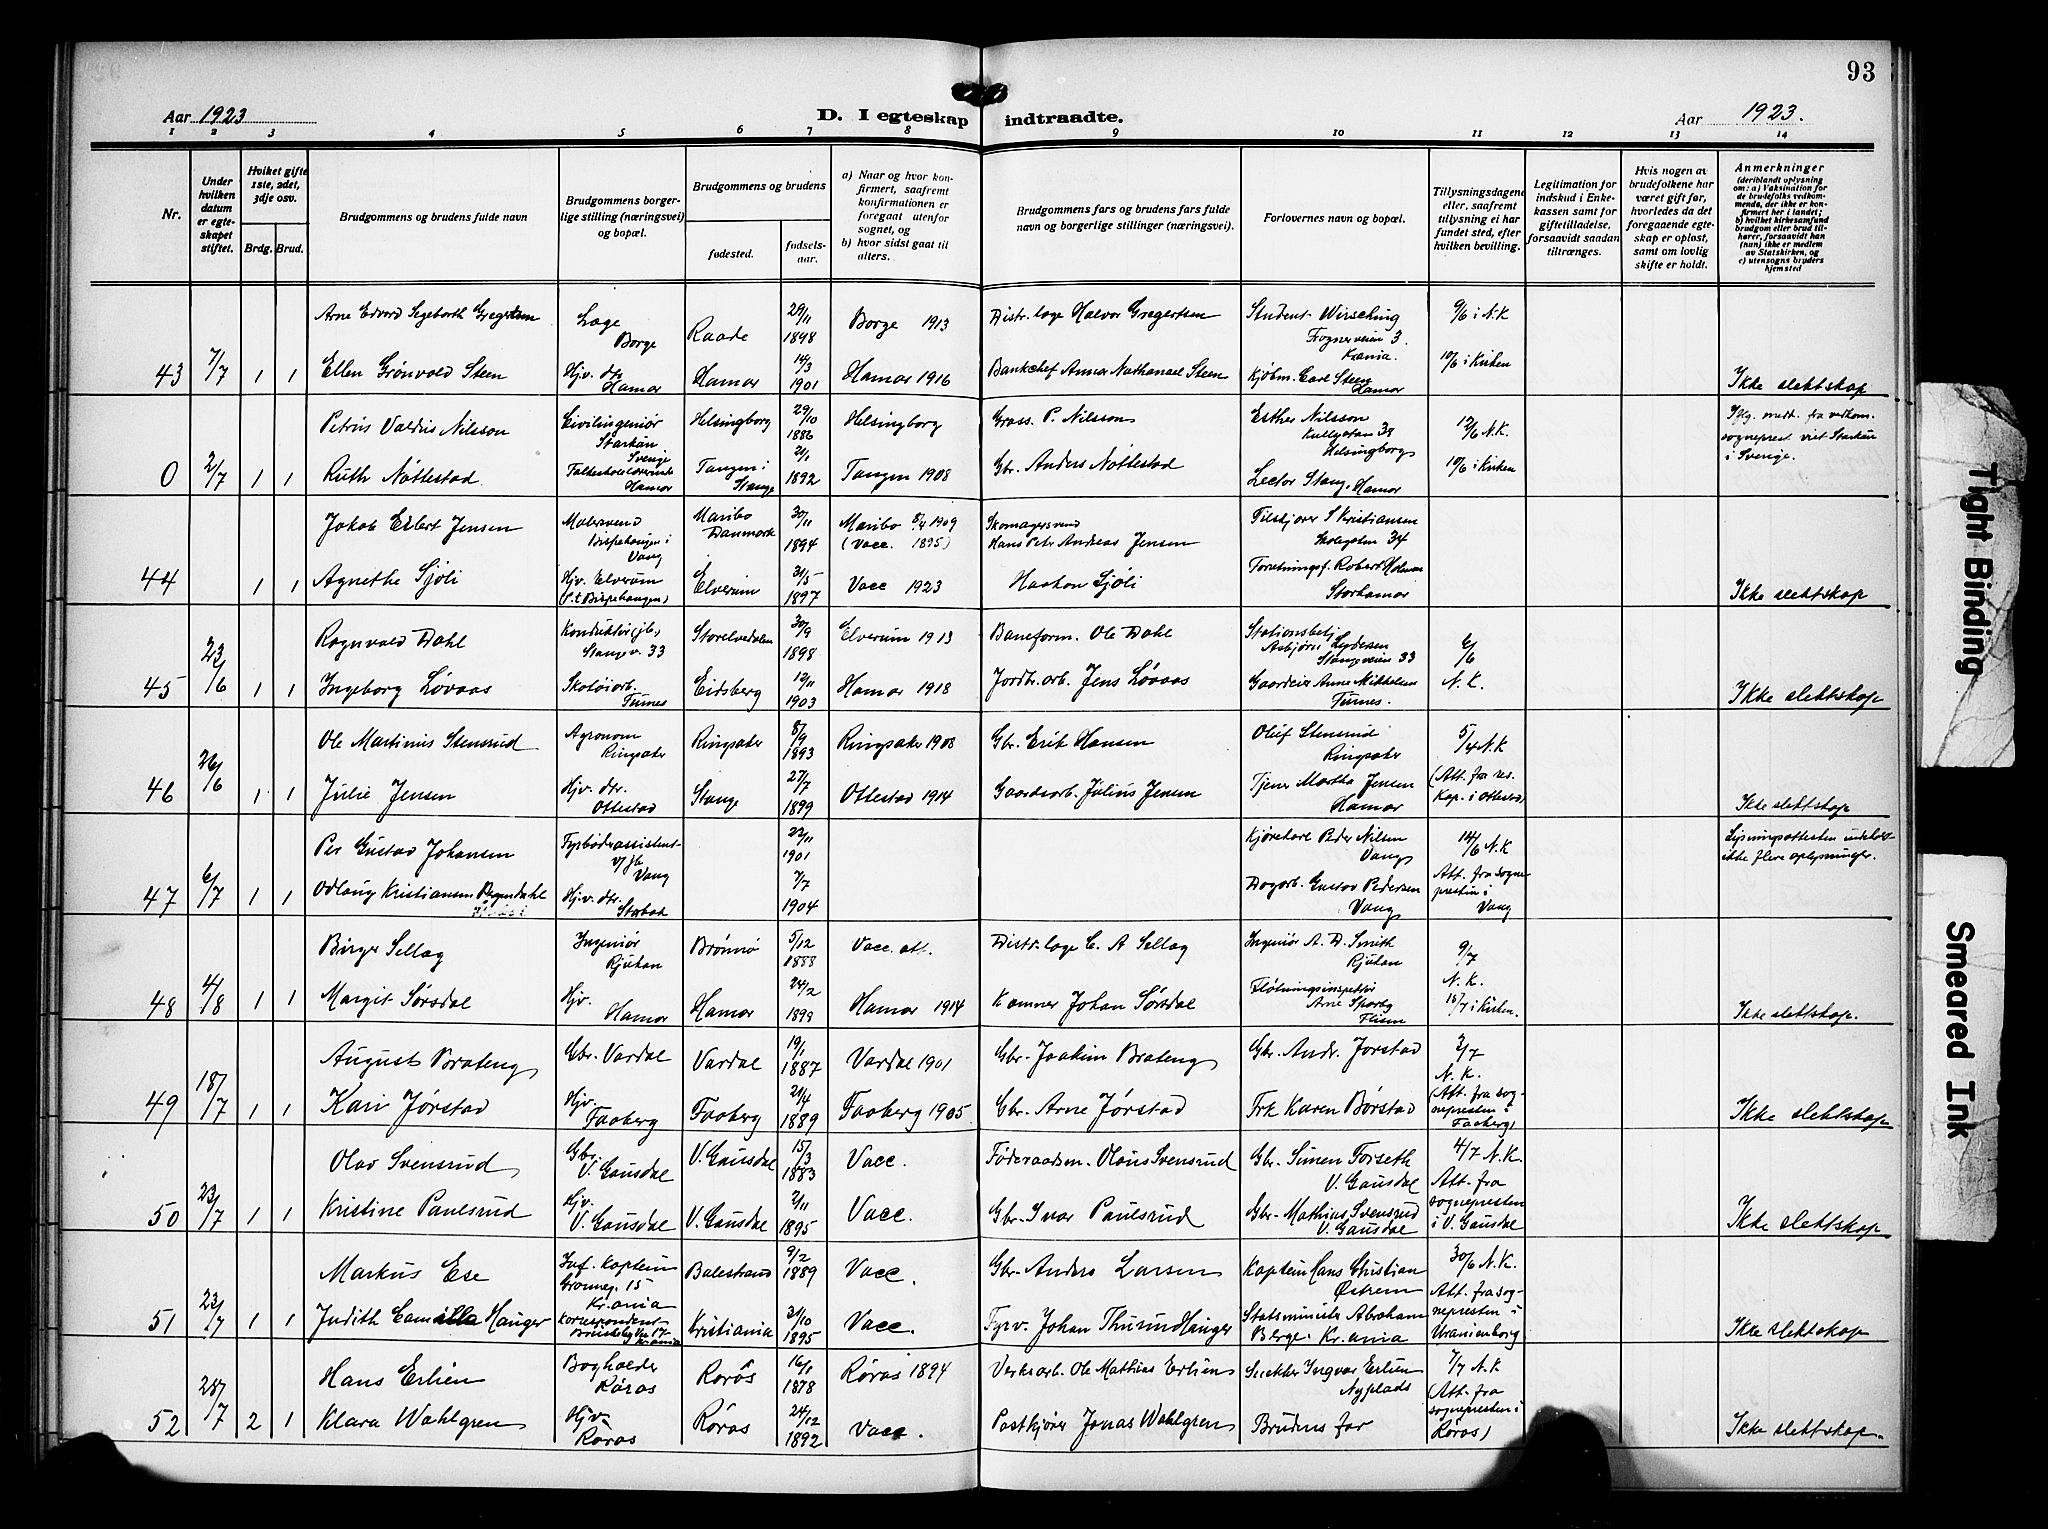 93
Aar 1923
D. I egteskap indtraadte.
Aar 1923.
1 2 3 4 5 6 7 8 9 10 11 12 13 14
Nr.
Under hvilken datum er egteskapet stiftet.
Hvilket gifte 1ste, 2det, 3dje osv.
Brdg. Brud.
Brudgommens og brudens fulde navn
Brudgommens borgerlige stilling (næringsvei) og bopæl.
Brudgommens og brudens
fødested.
fødselsaar.
a) Naar og hvor konfirmert, saafremt konfirmationen er foregaat utenfor sognet, og
b) hvor sidst gaat til alters.
Brudgommens fars og brudens fars fulde navn og borgerlige stillinger (næringsvei).
Forlovernes navn og bopæl.
Tillysningsdagene eller, saafremt tillysning ei har fundet sted, efter hvilken bevilling.
Legitimation for indskud i Enkekassen samt for giftetilladelse, forsaavidt saadan tiltrænges.
Hvis nogen av brudefolkene har været gift før, hvorledes da det foregaaende egteskap er opløst, samt om lovlig skifte er holdt.
Anmerkninger
(deriblandt oplysning om: a) Vaksination for de brudefolks vedkommende, der ikke er konfirmert her i landet; b) hvilket kirkesamfund brudgom eller brud tilhører, forsaavidt han (hun) ikke er medlem av Statskirken, og c) utensogns bruders hjemsted
Arne Edvard Segeborth Gregertsen Læge Borge Raade 29/11 1898 Borge 1913 Distr. læge Halvor Gregertsen Student Wirsching Frognerveien 3. Krania. 9/6 i N.K
43 7/7 1 1 Ellen Grønvold Steen Hjv. dtr Hamar Hamar 14/3 1901 Hamar 1916 Bankchef Annar Nathanael Steen Kjøbm. Carl Steen Hamar 10/6 i Kirken Ikke slektskap
Petrus Valdus Nilsson Civilingeniør Starkån Sverige Helsingborg 29/10 1886 Helsingborg Gross. P. Nilsson Esther Nilsson Kullgatan 38 Helsingborg 12/6 N.K. Iflg. medd. fra vedkom. sogneprest viet Starkån i Sverige.
0 2/7 1 1 Ruth Nøttestad. Hamar Tangen i Stange 21/1 1892 Tangen 1908 Gbr. Anders Nøttestad Lector Stang, Hamar 10/6 i Kirken
Jakob Eilert Jensen Malersvend Bispehaugen i Vang Maribo Danmark 30/11 1894 Maribo 8/4 1909 (Vacc. 1895) Skomagersvend Hans Petr Andreas Jensen Tilskjærer S Kristiansen Skolegaten 34
44 1 1 Agnethe Sjøli Hjv. Elverum (p.t Bispehaugen) Elverum 31/5 1897 Vacc 1923 Haakon Sjøli Forretningsf. Robert Holmen Storhamar Ikke slektskap
Ragnvald Dahl Konduktør(jb) Stangev. 33 Storelvedalen 30/9 1898 Elverum 1913 Baneform. Ole Dahl Stationsbetj. Asbjørn Lydersen Stangveien 33 6/6
45 23/6 1 1 Ingeborg Løvaas Skotøiarb. Furnes Eidsberg 12/11 1903 Hamar 1918 Jordbr. arb. Jens Løvaas Gaardeier Arne Mikkelsen Furnes. N.K. Ikke slektskap
Ole Martinius Stensrud Agronom Ringsaker Ringsaker 8/9 1893 Ringsaker 1908 Gbr. Erik Hansen Oluf Stensrud Ringsaker 5/4 N.K
46 26/6 1 1 Julie Jensen Hjv. dtr. Ottestad Stange 27/7 1899 Ottestad 1914 Gaardsarb. Julius Jensen Tjener Martha Jensen Hamar (Att. fra res. Kap. i Ottestad) Ikke slektskap
Per Gustav Johansen Fyrbøderassistent v/jb Vang 23/11 1901 Kjørekarl Peder Nilsen Vang 14/6 N.K Lysningsattesten indeholdt ikke flere oplysninger.
47 6/7 1 1 Odlaug Kristiansen Hjv. dtr. 7/7 1904 Dagarb. Gustav Pedersen Vang Att. fra sogne presten i Vang
Birger Sellæg Ingeniør Rjukan Brønnø 5/12 1888 Vacc. att. Distr. læge C. A Sellæg Ingeniør A. D. Smith Rjukan 9/7 N.K.
48 4/8 1 1 Margit Sørsdal Hjv. Hamar Hamar 24/2 1898 Hamar 1914 Kæmner Johan Sørsdal Fløtningsinspektør Arne Sporby Flisen 15/7 i Kirken. Ikke slektskap.
August Brateng Gbr. Vardal Vardal 19/1 1887 Vardal 1901 Gbr. Joakim Brateng Gbr. Andr. Jørstad 3/7 N.K.
49 18/7 1 1 Kari Jørstad Hjv. Faaberg Faaberg 21/4 1889 Faaberg 1905 Gbr. Arne Jørstad Frk Karen Børstad (Att. fra sognepresten i Faaberg) Ikke slektskap
Olav Svensrud Gbr. V. Gausdal V. Gausdal 15/3 1883 Vacc. Føderaadsm. Olaus Svensrud Gbr. Simen Forseth V. Gausdal 4/7 N.K.
50 23/7 1 1 Kristine Paulsrud Hjv. V. Gausdal V. Gausdal 2/11 1895 Vacc. Gbr. Ivar Paulsrud Gbr. Mathias Svensrud V. Gausdal Att. fra sognepresten i V. Gausdal Ikke slektskap
Markus Ese Inf. Kaptein Grønneg. 15 Kr.ania Balestrand 9/2 1889 Vacc. Gbr. Anders Larsen Kaptein Hans Christian Østrem 30/6 N.K.
51 23/7 1 1 Judith Camilla Hauger Korrespondent Kr.ania Kristiania 31/10 1895 Vacc. Fyrv. Johan Thurun Hauger Statsminister Abraham Berge. Kr.ania Att. fra sognepresten i Uranienborg Ikke slektskap
Hans Erlien Bogholder Røros Røros 16/1 1878 Røros 1894 Verksarb. Ole Mathias Erlien Snekker Ingvar Erlien Nyplads 7/7 N.K
52 28/7 2 1 Klara Wahlgren Hjv. Røros Røros 24/12 1892 Vacc. Postkjører Jonas Wahlgren Brudens far (Att. fra sognepresten i Røros) Ikke slektskap.
Tight Binding
Smeared Ink